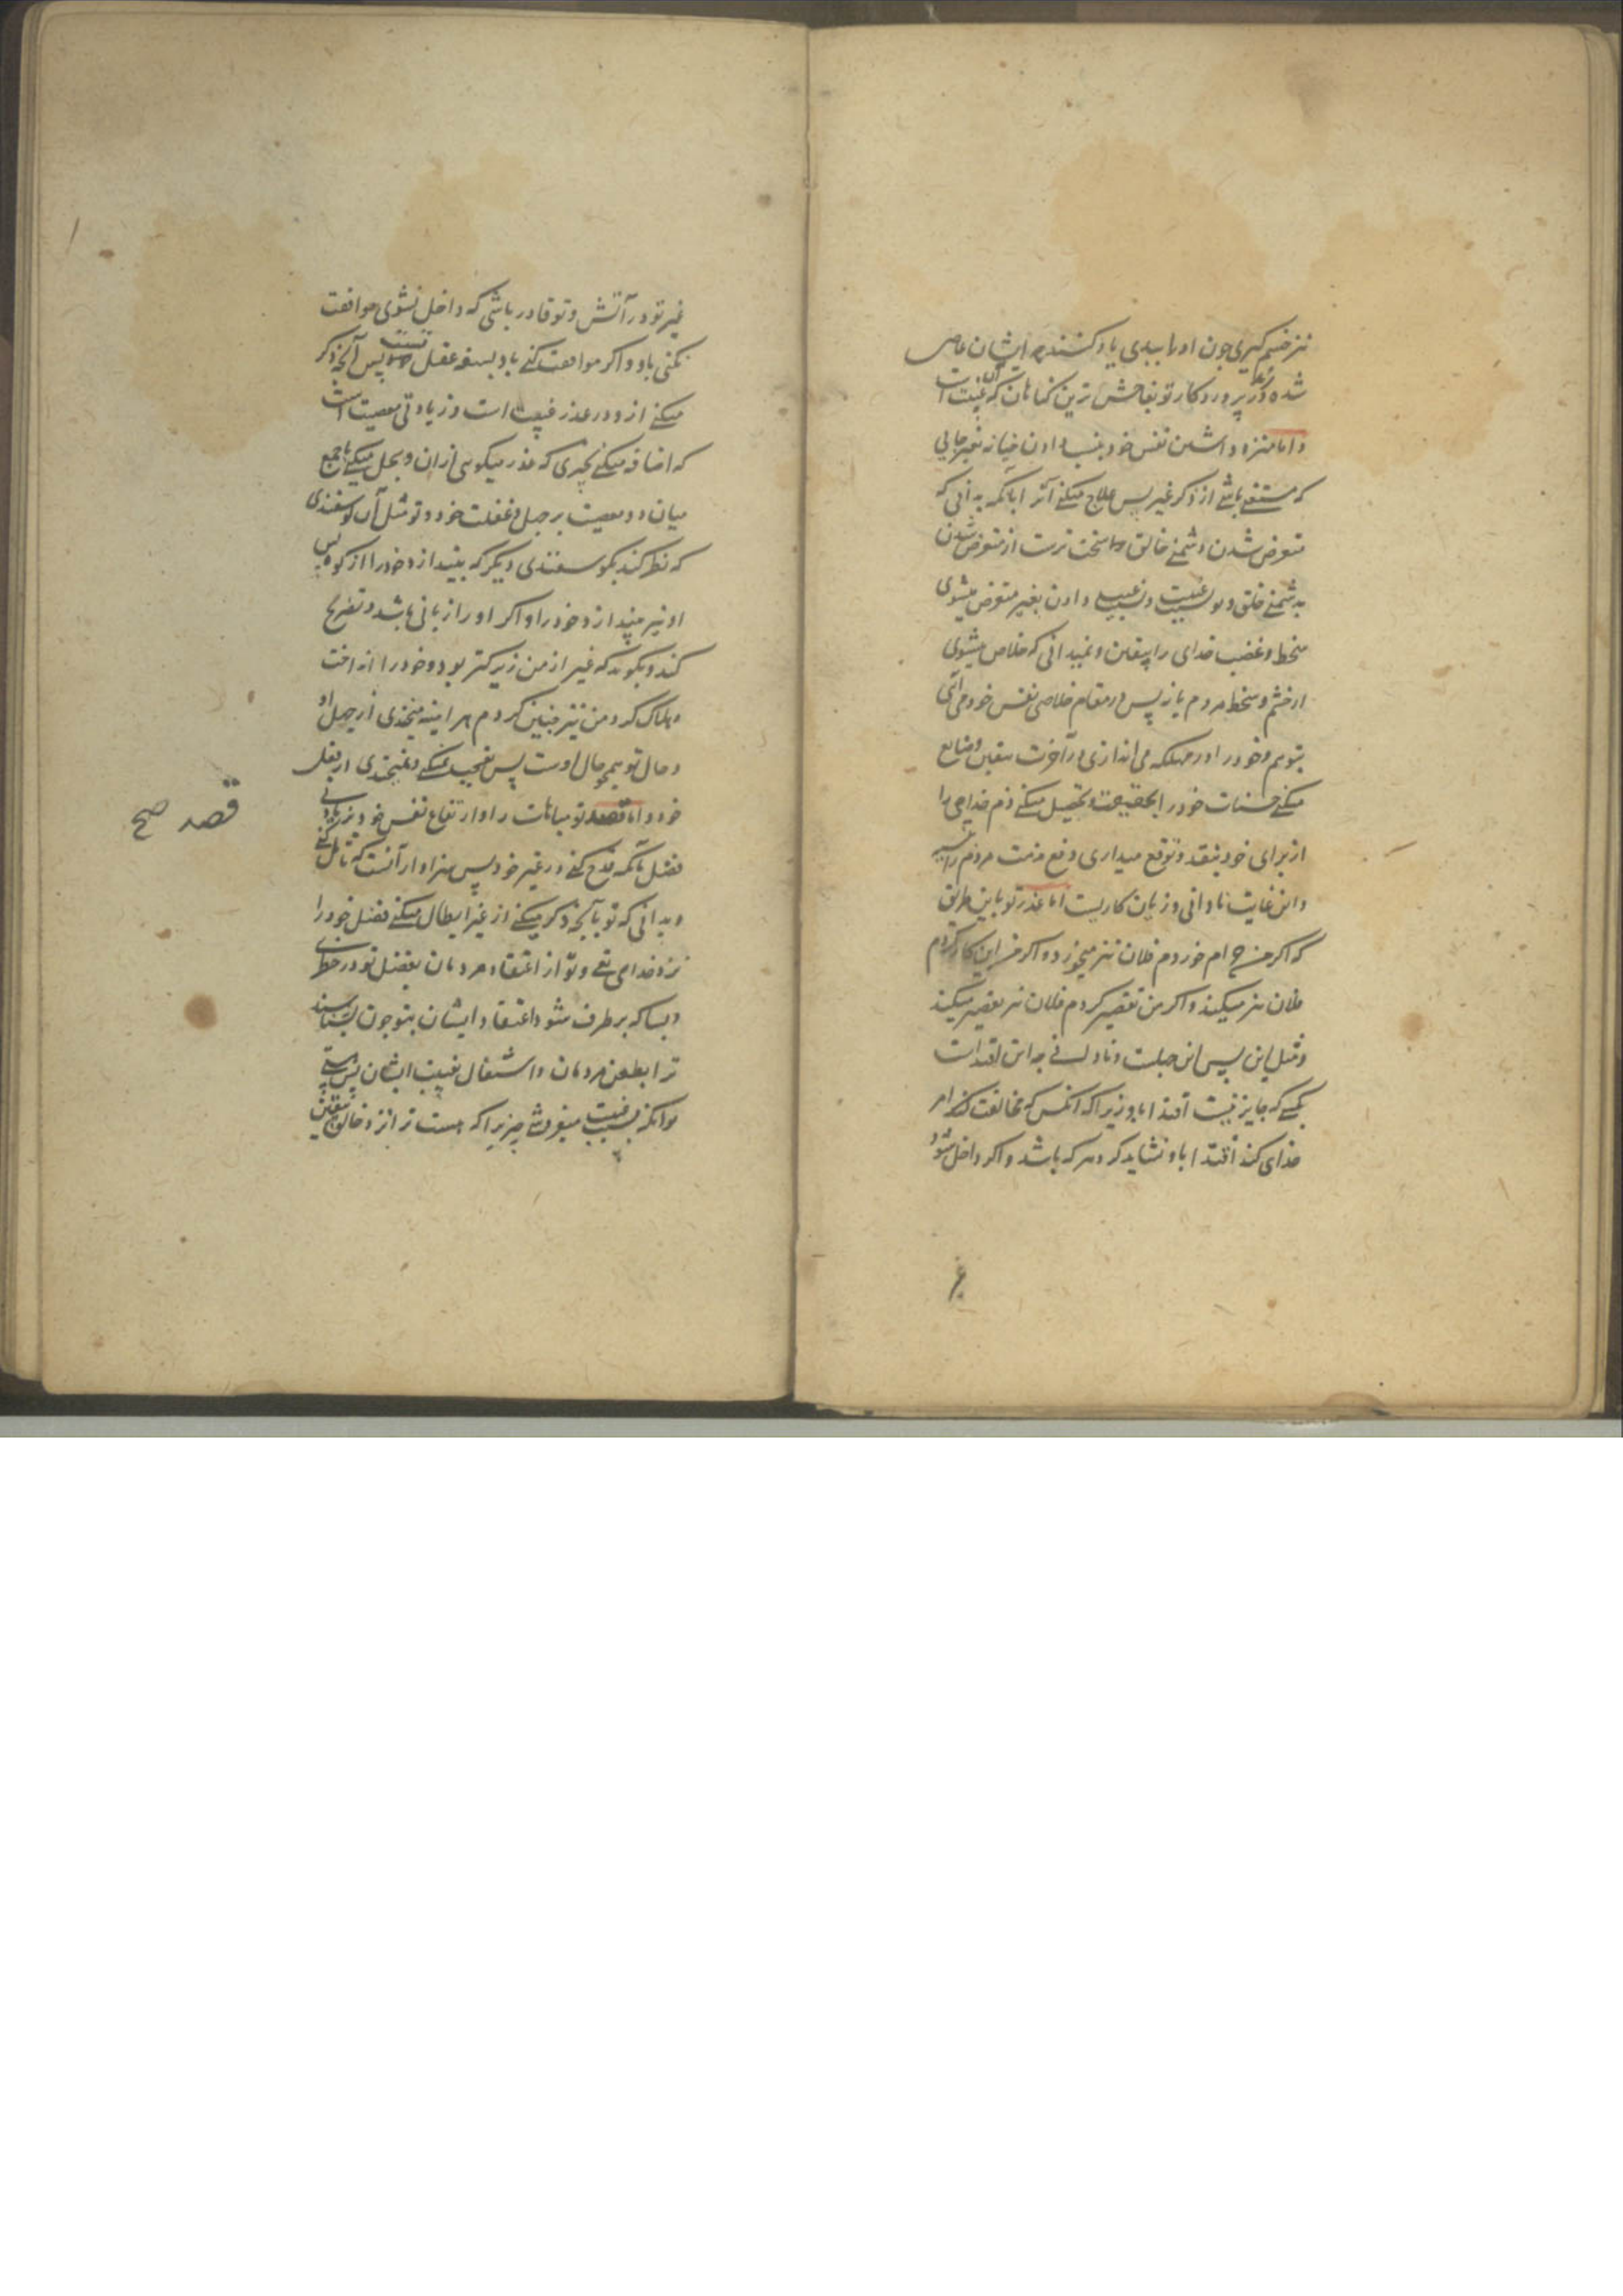 نیز خشم گیری چون او را ببدی یاد کنند چه ایشان عاصی
شده اند پروردگار تو بفاحش ترین گناهان که آن غیبت است
و اما منزه داشتن نفس خود بنسبت دادن خیانه بغیر جایی
که مستغنی باشی از ذکر غیر پس علاج میکنی آنرا بآنکه بدانی که
متعرض شدن دشمنی خالق را سخت ترست از متعرض شدن
دشمنی خلق و تو بسبب غیبت و نسبت دادن بغیر متعرض میشوی
سخط و غضب خدای را بیقین و نمیدانی که خلاص میشوی
از خشم و سخط مردم یا نه پس در مقام خلاصی نفس خود می آئی
بتوهم و خود را در مهلکه می اندازی در آخرت بیقین و ضایع
میکنی حسنات خود را بحقیقت و تحصیل میکنی ذم خدای را
از برای خود بنقد و توقع میداری دفع مذمت مردم را بنسیه
و این غایت نادانی و زیان کاریست اما عذر تو باین طریق
که اگر من حرام خوردم فلان نیز میخورد و اگر من این کار کردم
فلان نیز میکند و اگر من تقصیر کردم فلان نیز تقصیر میکند
و مثل این پس این جهلست و نادانی چه این اقتداست
بکسی که جایز نیست اقتدا باو زیرا که آنکس که مخالفت کند امر
خدای کند اقتدا باو نشاید کرد هر که باشد و اگر داخل شود
غیر
غیر تو در آتش و تو قادر باشی که داخل نشوی موافقت
نکنی باو و اگر موافقت کنی باو بسفه عقل نسبت پس آنچه ذکر
میکنی از و در عذر غیبت است و زیادتی معصیت است
که اضافه میکنی بچیزی که عذر میگویی از ان و سجل میکنی با جمع
میان دو معصیت بر جهل و غفلت خود و تو مثل آن گوسفندی
که نظر کند بگوسفندی دیگر که بیندازد خود را از کوه پس
او نیز بیندازد خود را و اگر او را زبانی باشد و تصریح
کند و بگوید که غیر از من زیرکتر بود و خود را انداخت
و هلاک کرد من نیز چنین کردم هر اینه میخندی از جهل او
و حال تو همچو حال اوست پس تعجب نمیکنی و نمیخندی از نفس
خود و اما قصد تو مباهات را و ارتفاع نفس خود بزیادتی
فضل بآنکه قدح کنی در غیر خود پس سزاوار آنست که تامل کنی
و بدانی که تو بآنچه ذکر میکنی از غیر ابطال میکنی فضل خود را
نزد خدای تع و تو از اعتقاد مردمان بفضل تو در خطری
و بسا که بر طرف شود اعتقاد ایشان بتو چون بشناسند
ترا بطعن مردمان و اشتغال بغیبت ایشان پس بدرستی
که بسبب غیبت میفروشی چیزی را که هست ترا نزد خالق بیقین
قصد صح